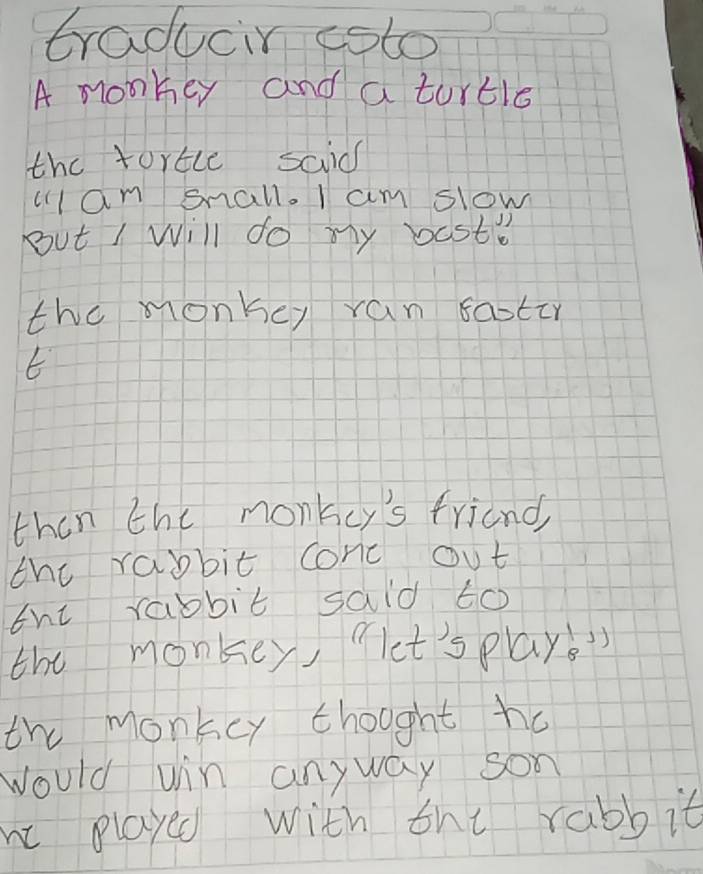 traducir esto
A monkey and a turtle
the tortle said
"I am small. I am slow
But I will do my best".
the monkey ran faster
t
then the monkey's friend,
the rabbit come out
the rabbit said to
the monkey, "let's play!"
the monkey thought he
would win anyway son
he played with the rabbit